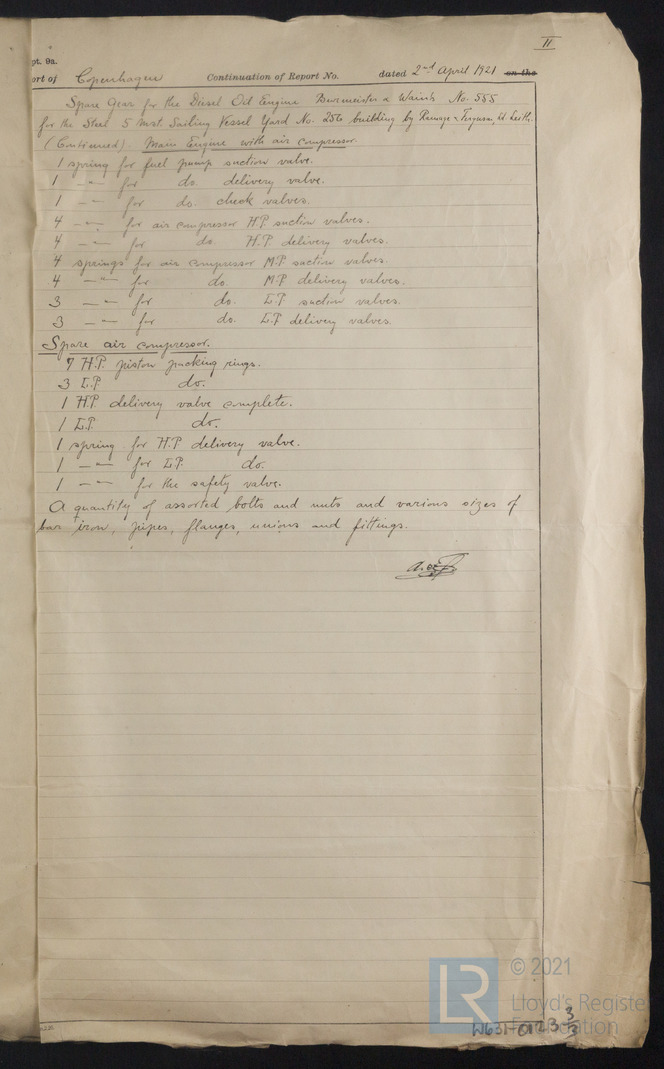 II
pt. 9a.
ort of Copenhagen Continuation of Report No. dated 2nd April 1921 on the
Spare Gear for the Diesel Oil Engine Burmeister & Wain's No. 555
for the Steel 5 Mst. Sailing Vessel Yard No. 256 building by Ramage & Ferguson, Ld Leith.
(Continued). Main Engine with air compressor.
1 spring for fuel pump suction valve.
1 —"— for do. delivery valve.
1 —"— for do. check valves.
4 —"— for air compressor H.P. suction valves.
4 —"— for do. H.P. delivery valves.
4 springs for air compressor M.P. suction valves.
4 —"— for do. M.P. delivery valves.
3 —"— for do. L.P. suction valves.
3 —"— for do. L.P. delivery valves.
Spare air compressor.
7 H.P. piston packing rings.
3 L.P. do.
1 H.P. delivery valve complete.
1 L.P. do.
1 spring for H.P. delivery valve.
1 —"— for L.P. do.
1 —"— for the safety valve.
A quantity of assorted bolts and nuts and various sizes of
bar iron, pipes, flanges, unions and fittings.
LR © 2021
Lloyd's Registe
Foundation
W631-0123 3/3